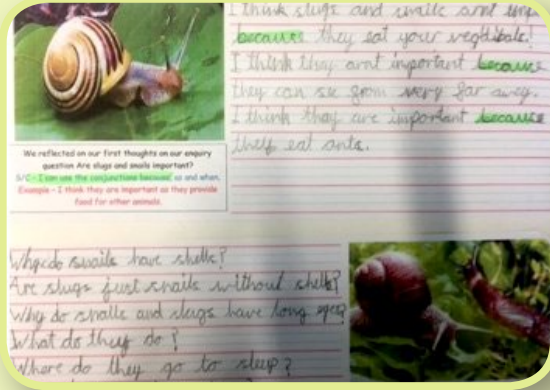 I think slugs and snails arnt imp
because they eat your vegtibals!
I think they arnt important because
they can see from very far away.
I think they are important because
they eat ants.
We reflected on our first thoughts on our enquiry
question Are slugs and snails important?
S/C - I can use the conjunctions because, as and when.
Example - I think they are important as they provide
food for other animals.
Why do snails have shells?
Are slugs just snails without shells?
Why do snails and slugs have long eyes?
What do they do?
Where do they go to sleep?